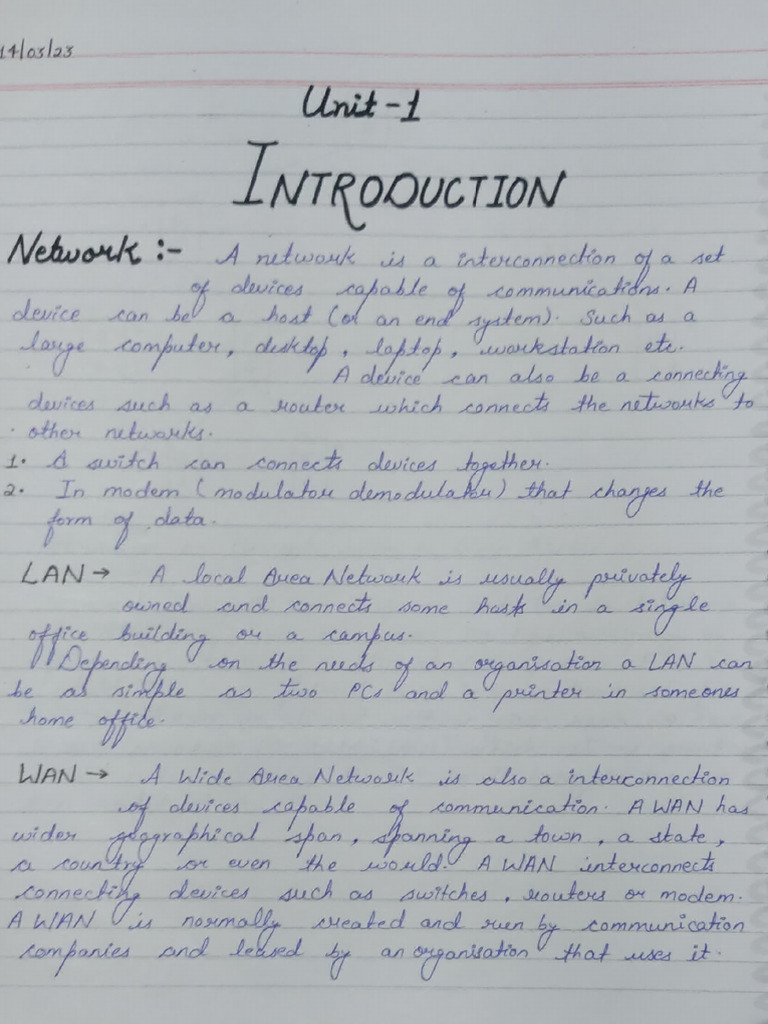 14/03/23
Unit-1
INTRODUCTION
Network :- A network is a interconnection of a set
of devices capable of communications. A
device can be a host (or an end system). Such as a
large computer, desktop, laptop, workstation etc.
A device can also be a connecting
devices such as a router which connects the networks to
other networks.
1. A switch can connects devices together.
2. In modem (modulator demodulator) that changes the
form of data.
LAN → A local Area Network is usually privately
owned and connects some hosts in a single
office building or a campus.
Depending on the needs of an organisation a LAN can
be as simple as two PCs and a printer in someones
home office.
WAN → A Wide Area Network is also a interconnection
of devices capable of communication. A WAN has
wider geographical span, spanning a town, a state,
a country or even the world. A WAN interconnects
connecting devices such as switches, routers or modem.
A WAN is normally created and run by communication
companies and leased by an organisation that uses it.